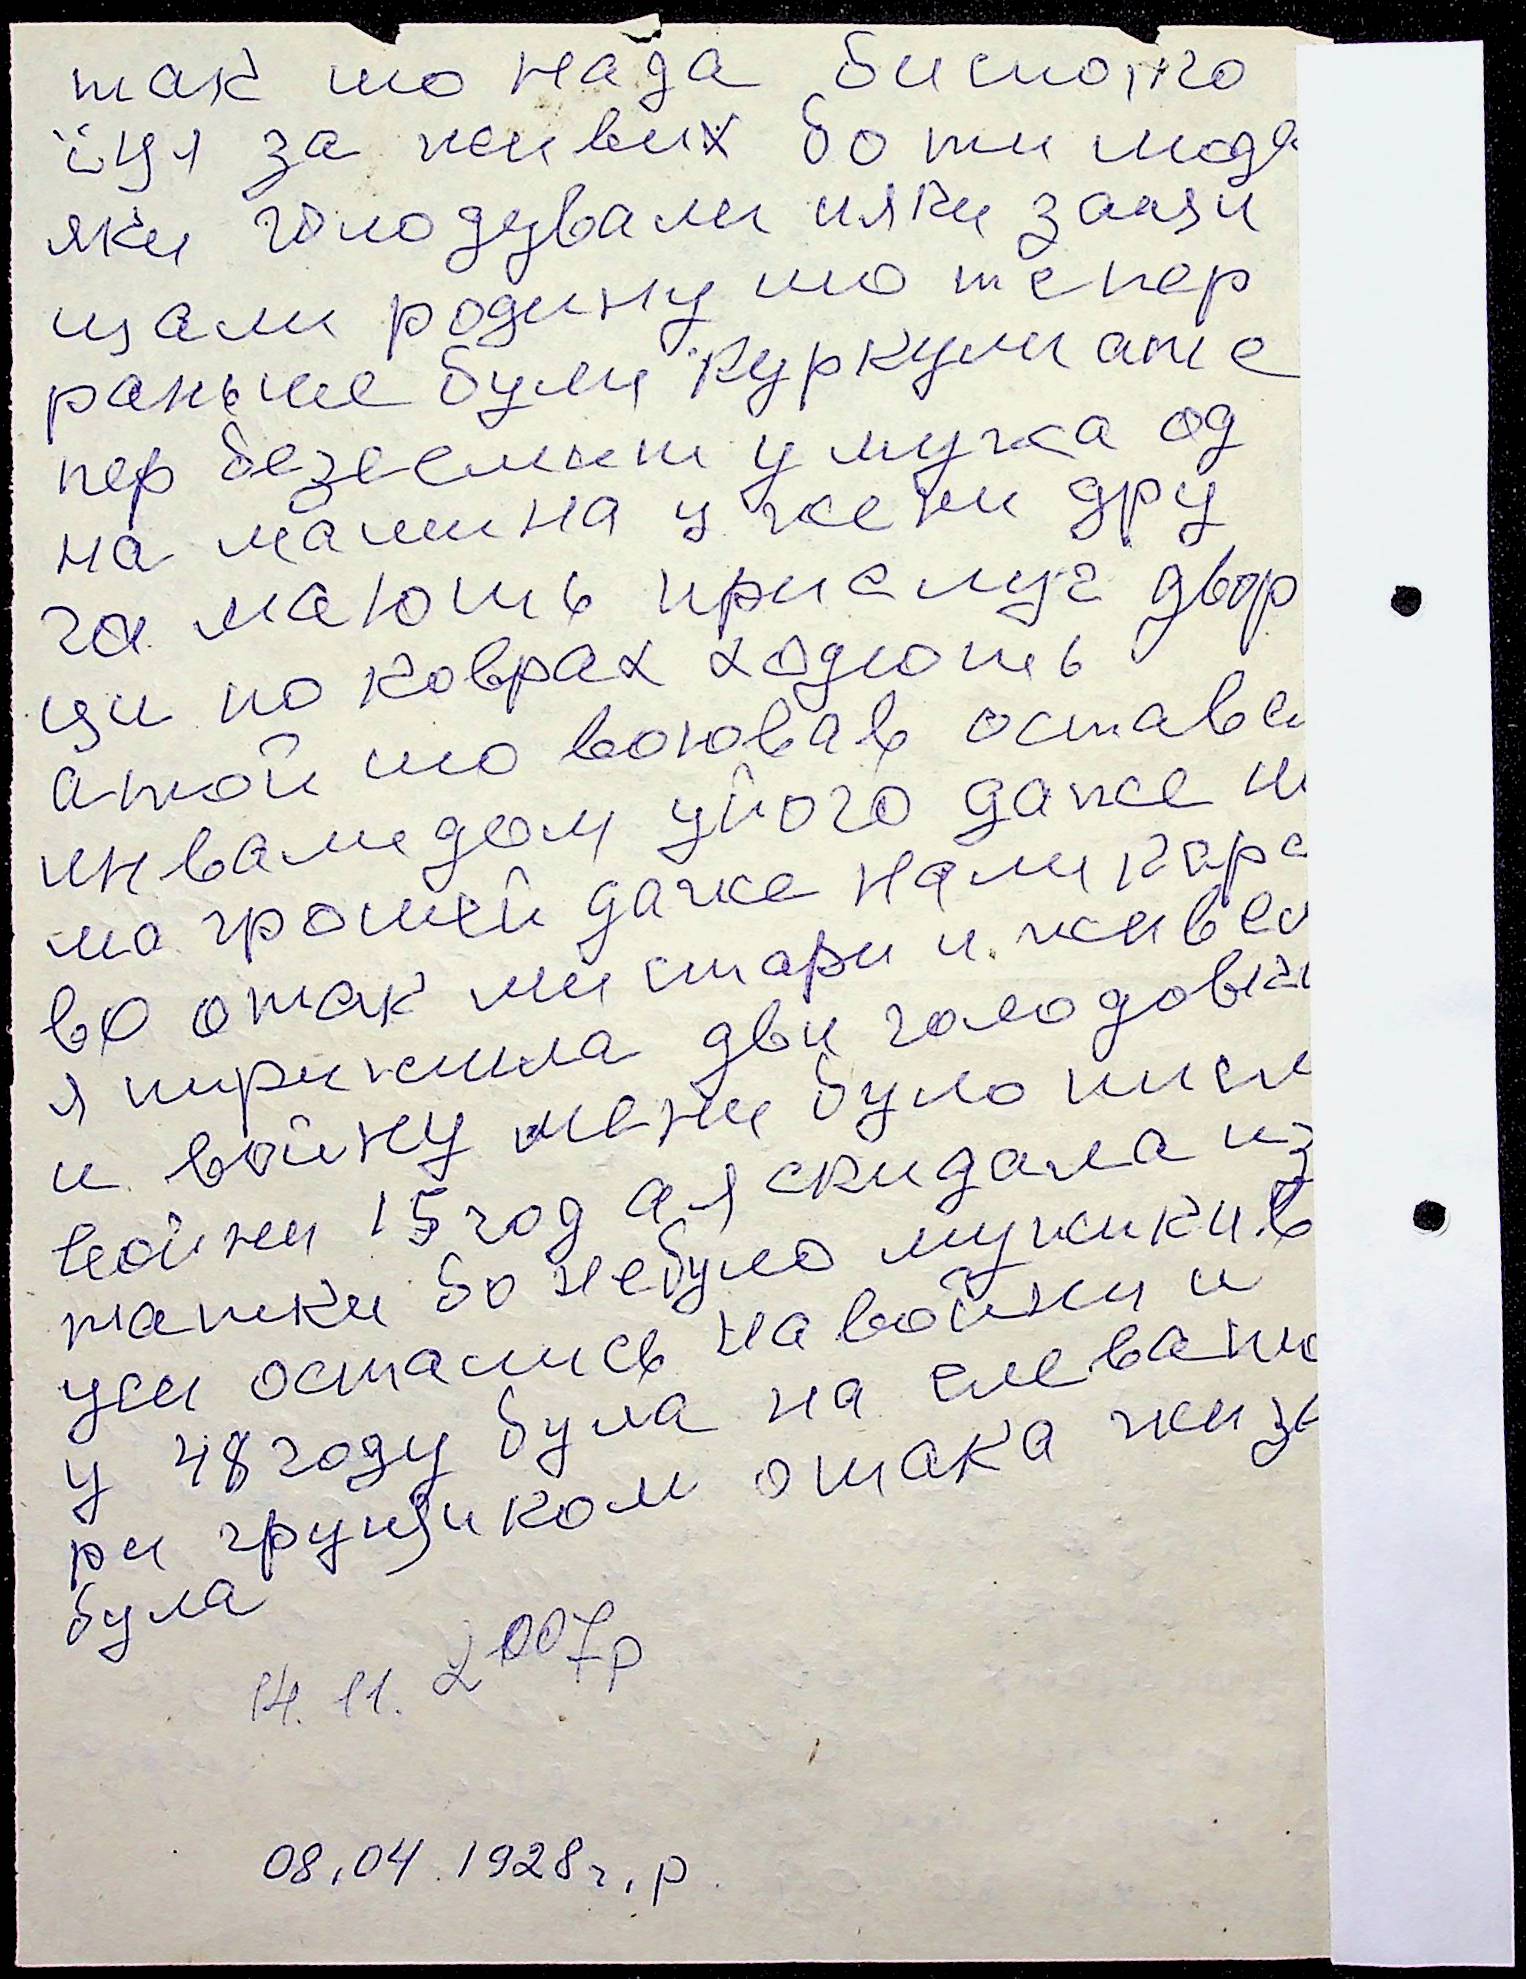 так шо нада
їця за живих бо ти люде
яки голодували ияки защи
щали родину шо тепер
раньше були куркули ате
пер безземит у мужа од
на машина у жени дру
га мають прислуг двор
ци по коврах ходють
атой шо воював оставсь
инвалидом уйого даже
ма грошей даже на ликарс
во отак ми стари и живем
я пирижила дви голодовки
и войну мени було писля
войни 15 год а я скидала из
ташки бо небуло мужикив
уси остались навойни и
у 48 году була на елевато
ри грущиком отака жизь
була
14. 11. 2007р
08.04.1928г.р.